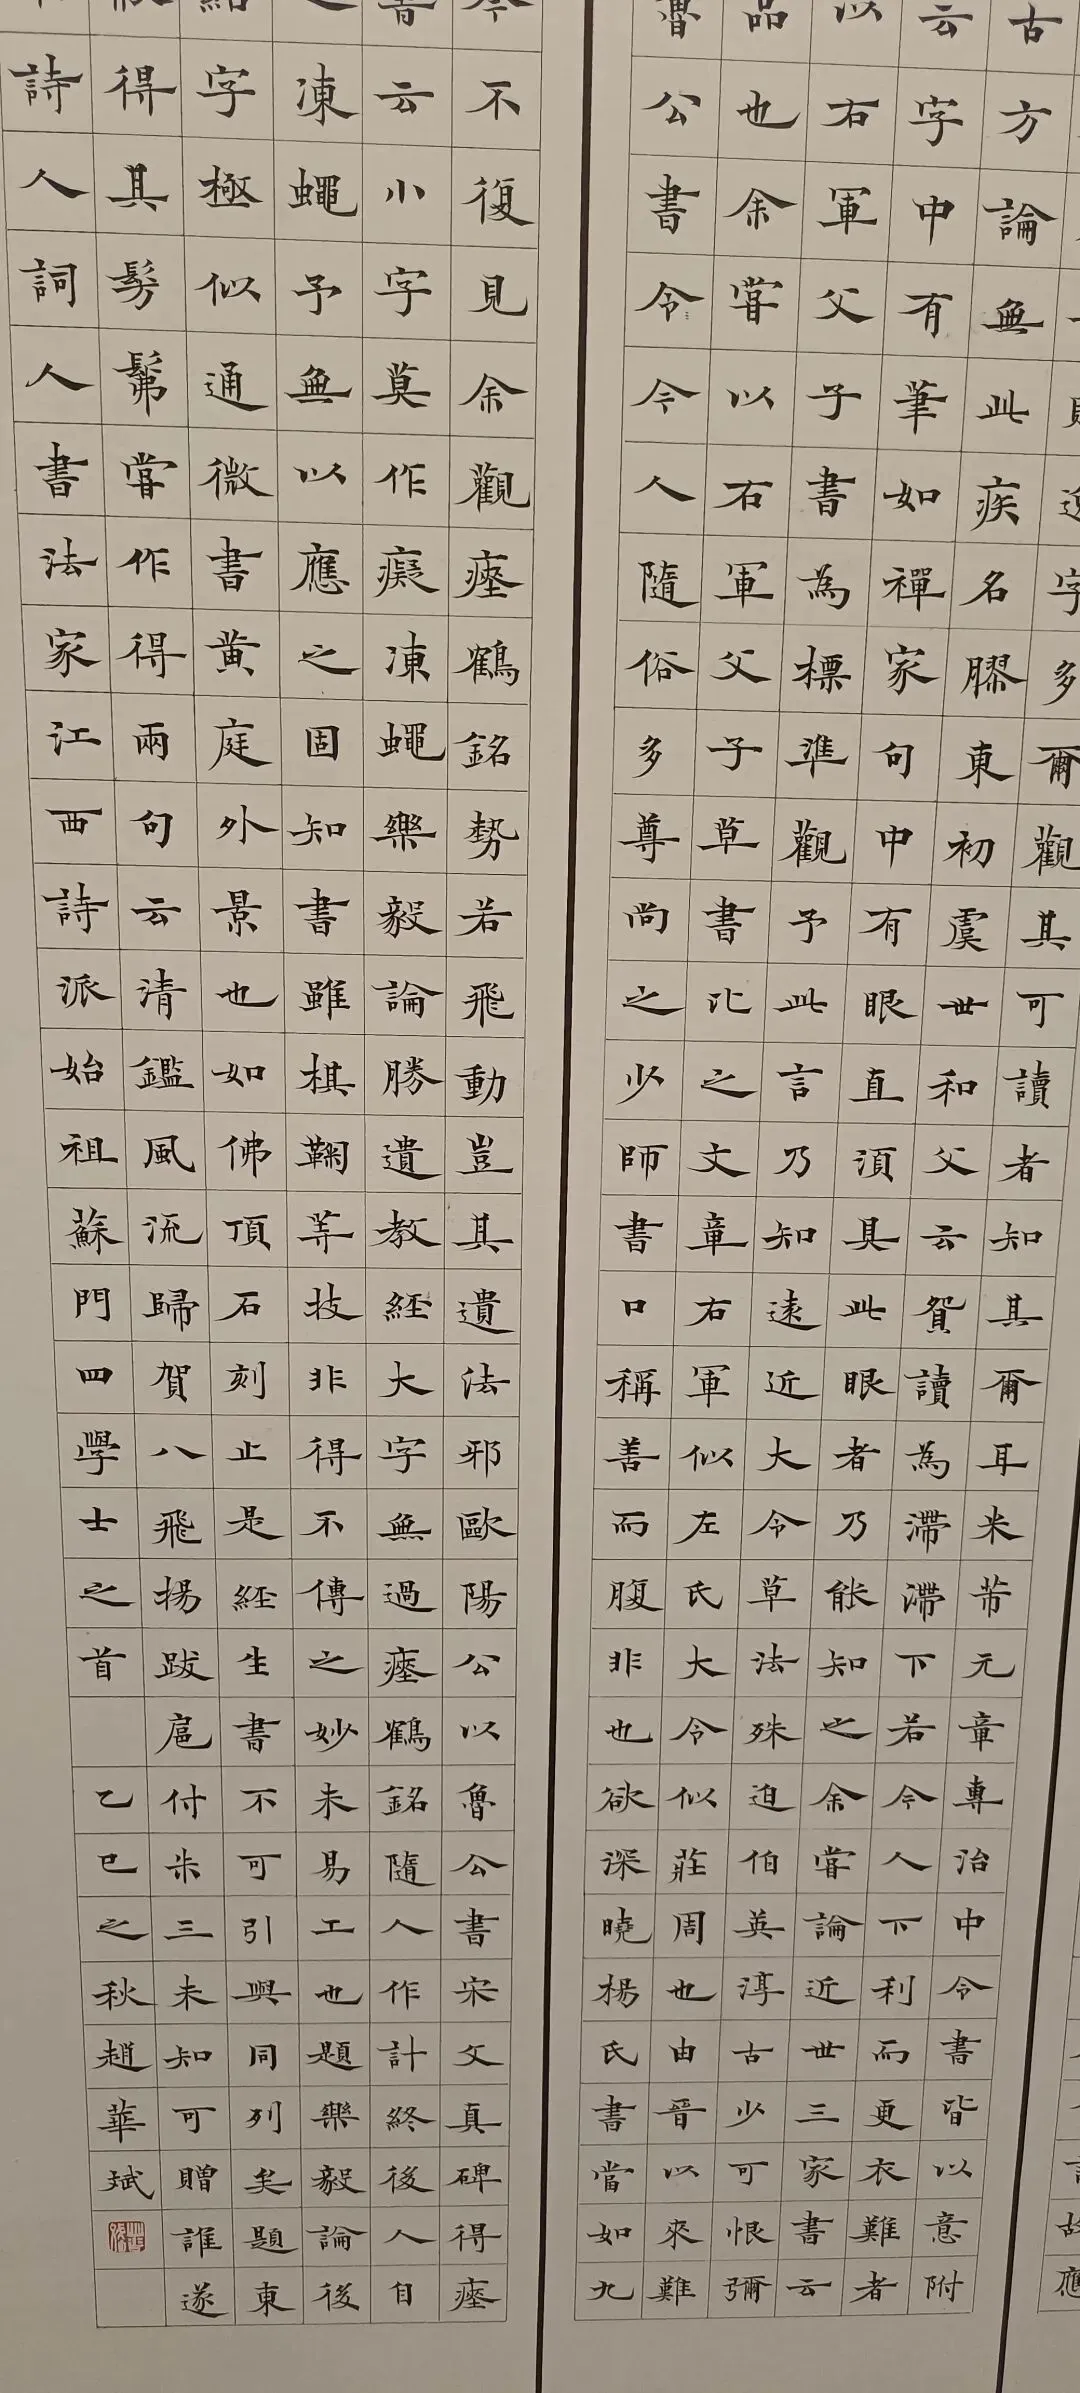 字多爾觀其可讀者知其爾耳米芾元章專治中令書皆以意附
古方論無此疾名膠東初虞世和父云賀讀為滯滯下若今人下利而更衣難者
云字中有筆如禪家句中有眼直須具此眼者乃能知之余嘗論近世三家書云
以右軍父子書為標準觀予此言乃知遠近大令草法殊迫伯英淳古少可恨彌
品也余嘗以右軍父子草書比之文章右軍似左氏大令似莊周也由晉以來難
魯公書令今人隨俗多尊尚之少師書口稱善而腹非也欲深曉楊氏書當如九
今不復見余觀瘞鶴銘勢若飛動豈其遺法邪歐陽公以魯公書宋文真碑得瘞
云小字莫作癡凍蠅樂毅論勝遺教經大字無過瘞鶴銘隨人作計終後人自
凍蠅予無以應之固知書雖棋鞠等技非得不傳之妙未易工也題樂毅論後
字極似通微書黃庭外景也如佛頂石刻止是經生書不可引與同列矣題東
得具髣髴嘗作得兩句云清鑑風流歸賀八飛揚跋扈付朱三未知可贈誰遂
詩人詞人書法家江西詩派始祖蘇門四學士之首 乙巳之秋趙華斌